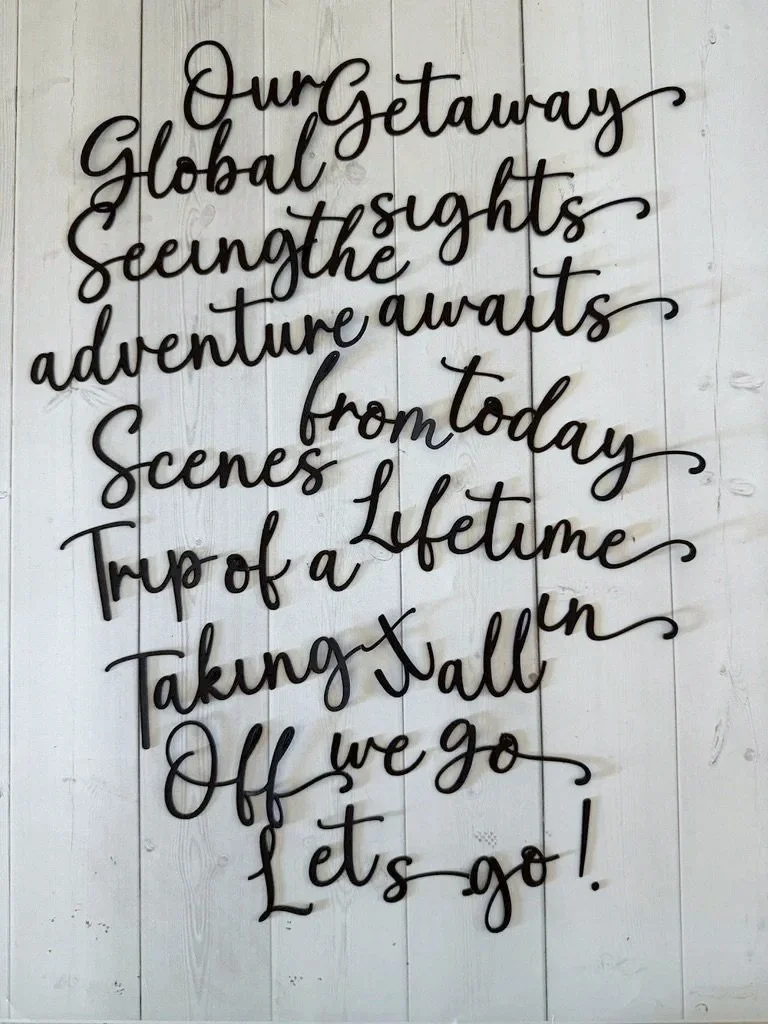 Our Getaway
Global
Seeing the sights
adventure awaits
Scenes from today
Trip of a Lifetime
Taking it all in
Off we go
Lets go!